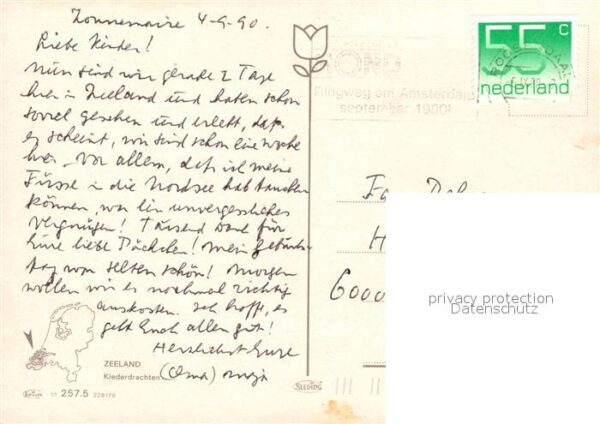 Zonnemaire 4-9-90.
Liebe Kinder!
Nun sind wir gerade 2 Tage
hier in Zeeland und haben schon
soviel gesehen und erlebt, daß
es scheint, wir sind schon eine Woche
hier. Vor allem, daß ich meine
Füsse in die Nordsee hab tauchen
können, war ein unvergessliches
Vergnügen! Tausend Dank für
Eure liebe Päckchen! Mein Geburts-
tag war selten schön! Morgen
wollen wir es nochmal richtig
auskosten. Ich hoffe, es
geht Euch allen gut!
Herzlichst Eure
(Oma)
ZEELAND
Klederdrachten
257.5
SLEDING
55 c
nederland
Ringweg om Amsterdam
september 1990!
Fa
6000
privacy protection
Datenschutz